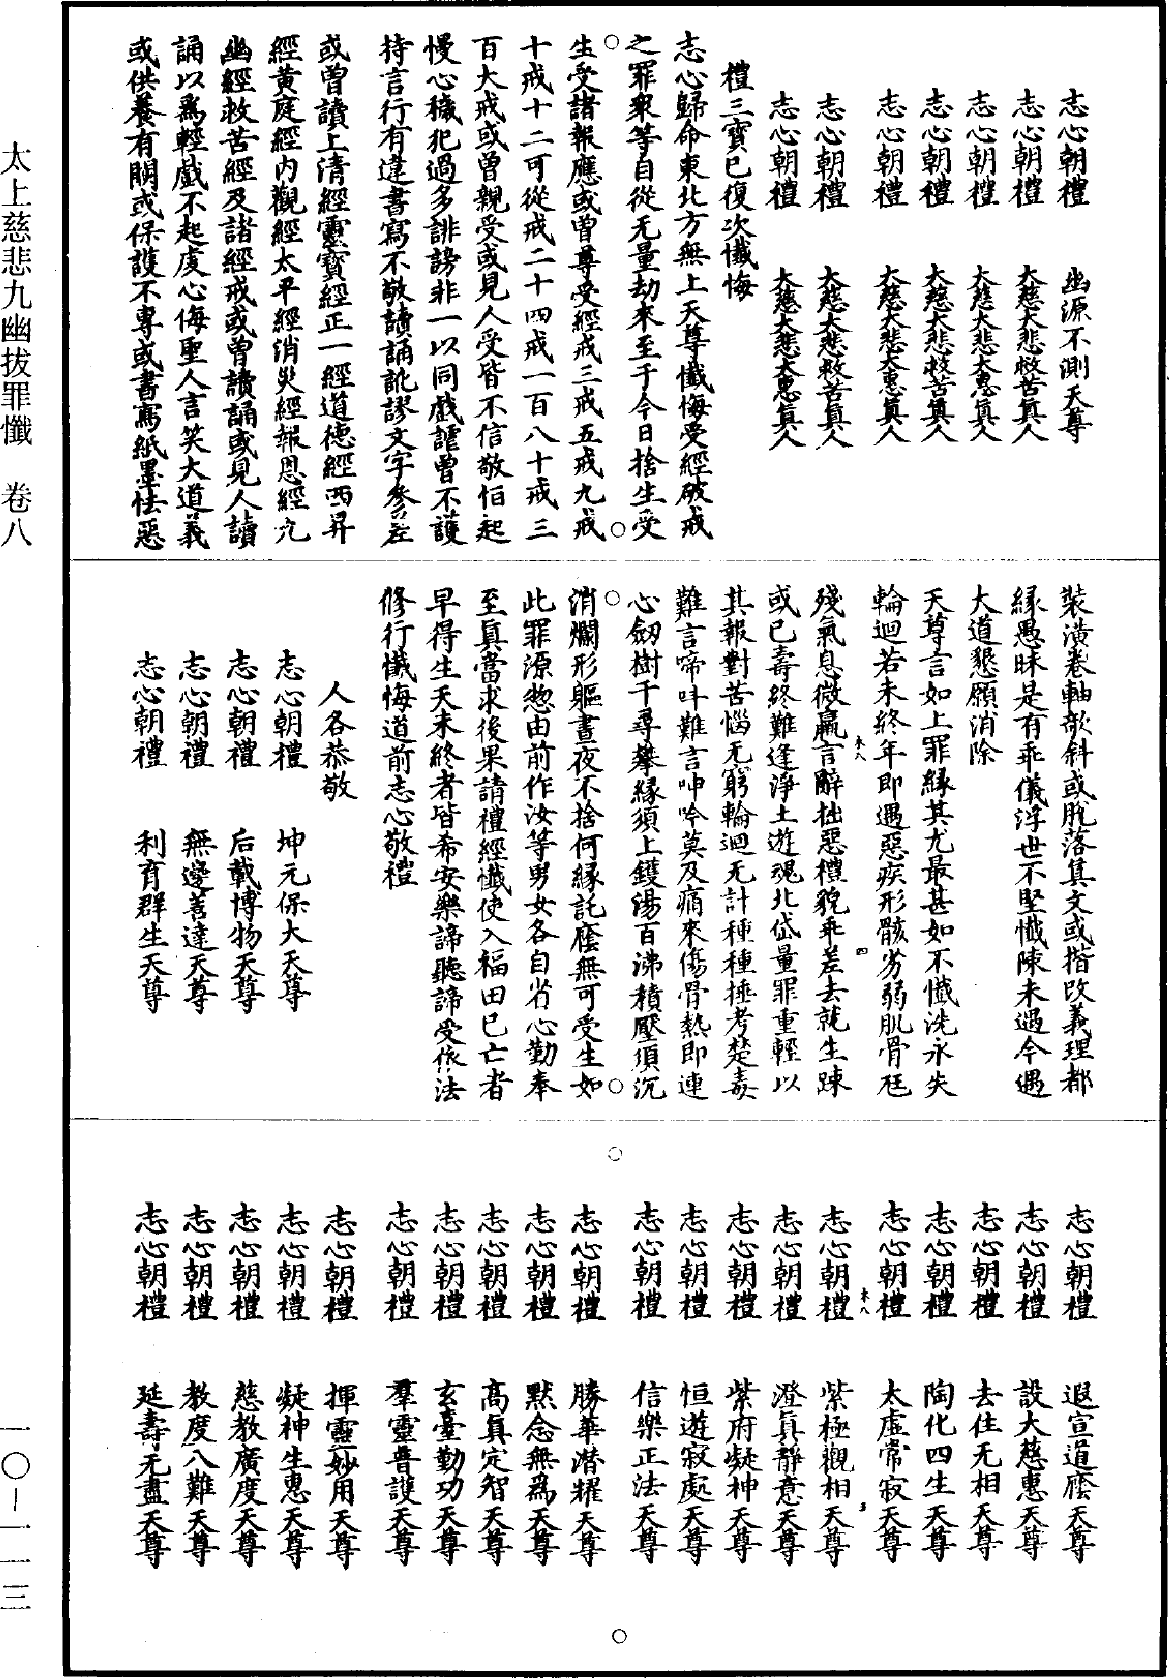 太上慈悲九幽拔罪懺　卷八
一〇—一一三
志心朝禮　幽源不測天尊
志心朝禮　大慈大悲救苦真人
志心朝禮　大慈大悲大惠真人
志心朝禮　大慈大悲救苦真人
志心朝禮　大慈大悲大惠真人
志心朝禮　大慈大悲救苦真人
志心朝禮　大慈大悲大惠真人
禮三寶已復次懺悔
志心歸命東北方無上天尊懺悔受經破戒
之罪衆等自從无量劫來至于今日捨生受
生受諸報應或曾尊受經戒三戒五戒九戒
十戒十二可從戒二十四戒一百八十戒三
百大戒或曾親受或見人受皆不信敬怕起
慢心穢犯過多誹謗非一以同戲謔曾不護
持言行有違書寫不敬讀誦訛謬文字參差
或曾讀上清經靈寶經正一經道德經西昇
經黃庭經內觀經太平經消災經報恩經九
幽經救苦經及諸經戒或曾讀誦或見人讀
誦以爲輕戲不起虔心侮聖人言笑大道義
或供養有闕或保護不專或書寫紙墨怯惡
裝潢卷軸欹斜或脫落真文或揩改義理都
緣愚昧是有乖儀浮世不堅懺陳未遇今遇
大道懇願消除
天尊言如上罪緣其尤最甚如不懺洗永失
輪迴若未終年即遇惡疾形骸劣弱肌骨尫
殘氣息微羸言辭拙惡禮貌乖差去就生踈
或已壽終難逢淨土遊魂北岱量罪重輕以
其報對苦惱无窮輪迴无計種種捶考楚毒
難言啼叫難言呻吟莫及痛來傷骨熱即連
心劒樹千尋攀緣須上鑊湯百沸積壓須沉
消爛形軀晝夜不捨何緣託䕃無可受生如
此罪源惣由前作汝等男女各自省心勤奉
至真當求後果請禮經懺使入福田已亡者
早得生天未終者皆希安樂諦聽諦受依法
修行懺悔道前志心敬禮
人各恭敬
志心朝禮　坤元保大天尊
志心朝禮　后載博物天尊
志心朝禮　無邊善達天尊
志心朝禮　利育群生天尊
志心朝禮　遐宣道䕃天尊
志心朝禮　設大慈惠天尊
志心朝禮　去住无相天尊
志心朝禮　陶化四生天尊
志心朝禮　太虛常寂天尊
志心朝禮　紫極觀相天尊
志心朝禮　澄真靜意天尊
志心朝禮　紫府凝神天尊
志心朝禮　恒遊寂處天尊
志心朝禮　信樂正法天尊
志心朝禮　勝華潜耀天尊
志心朝禮　默念無爲天尊
志心朝禮　高真定智天尊
志心朝禮　玄臺勤功天尊
志心朝禮　羣靈普護天尊
志心朝禮　揮靈妙用天尊
志心朝禮　凝神生惠天尊
志心朝禮　慈教廣度天尊
志心朝禮　教度八難天尊
志心朝禮　延壽无盡天尊